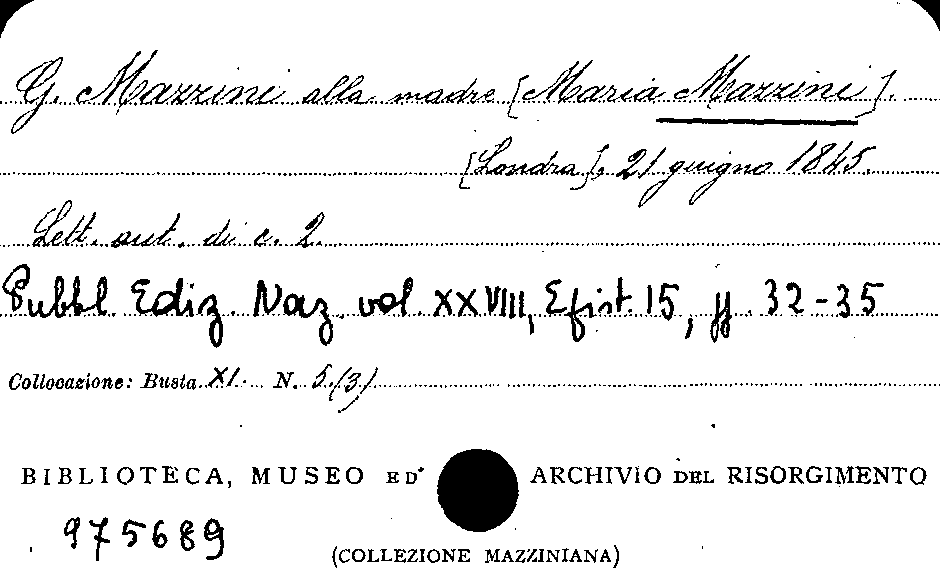 G. Mazzini alla madre [Maria Mazzini].
[Londra], 21 giugno 1845.
Lett. aut. di c. 2.
Pubbl. Ediz. Naz. vol. XXVIII, Epist. 15, pp. 32-35
Collocazione: Busta XI. N. 5 (3)
BIBLIOTECA, MUSEO ED ARCHIVIO DEL RISORGIMENTO
975689
(COLLEZIONE MAZZINIANA)